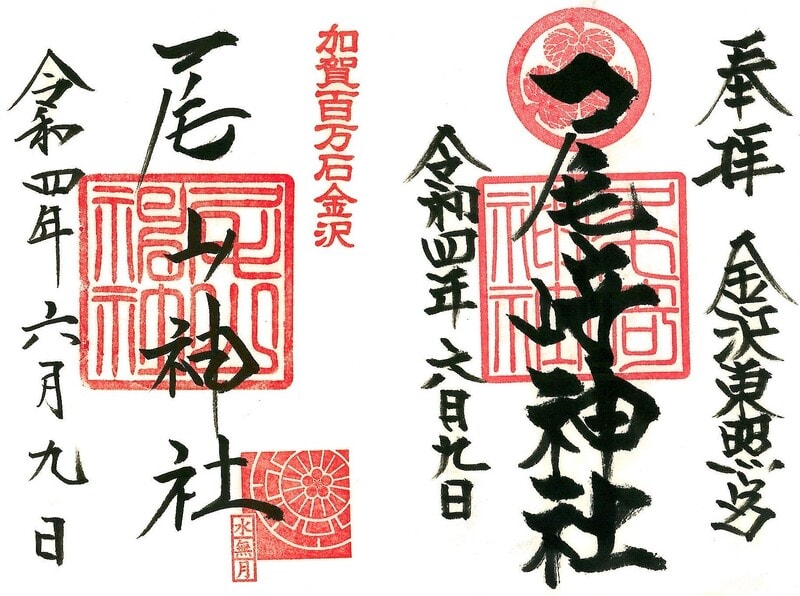 奉拝
金沢東照宮
尾崎神社
令和四年六月九日
加賀百万石金沢
尾山神社
水無月
令和四年六月九日